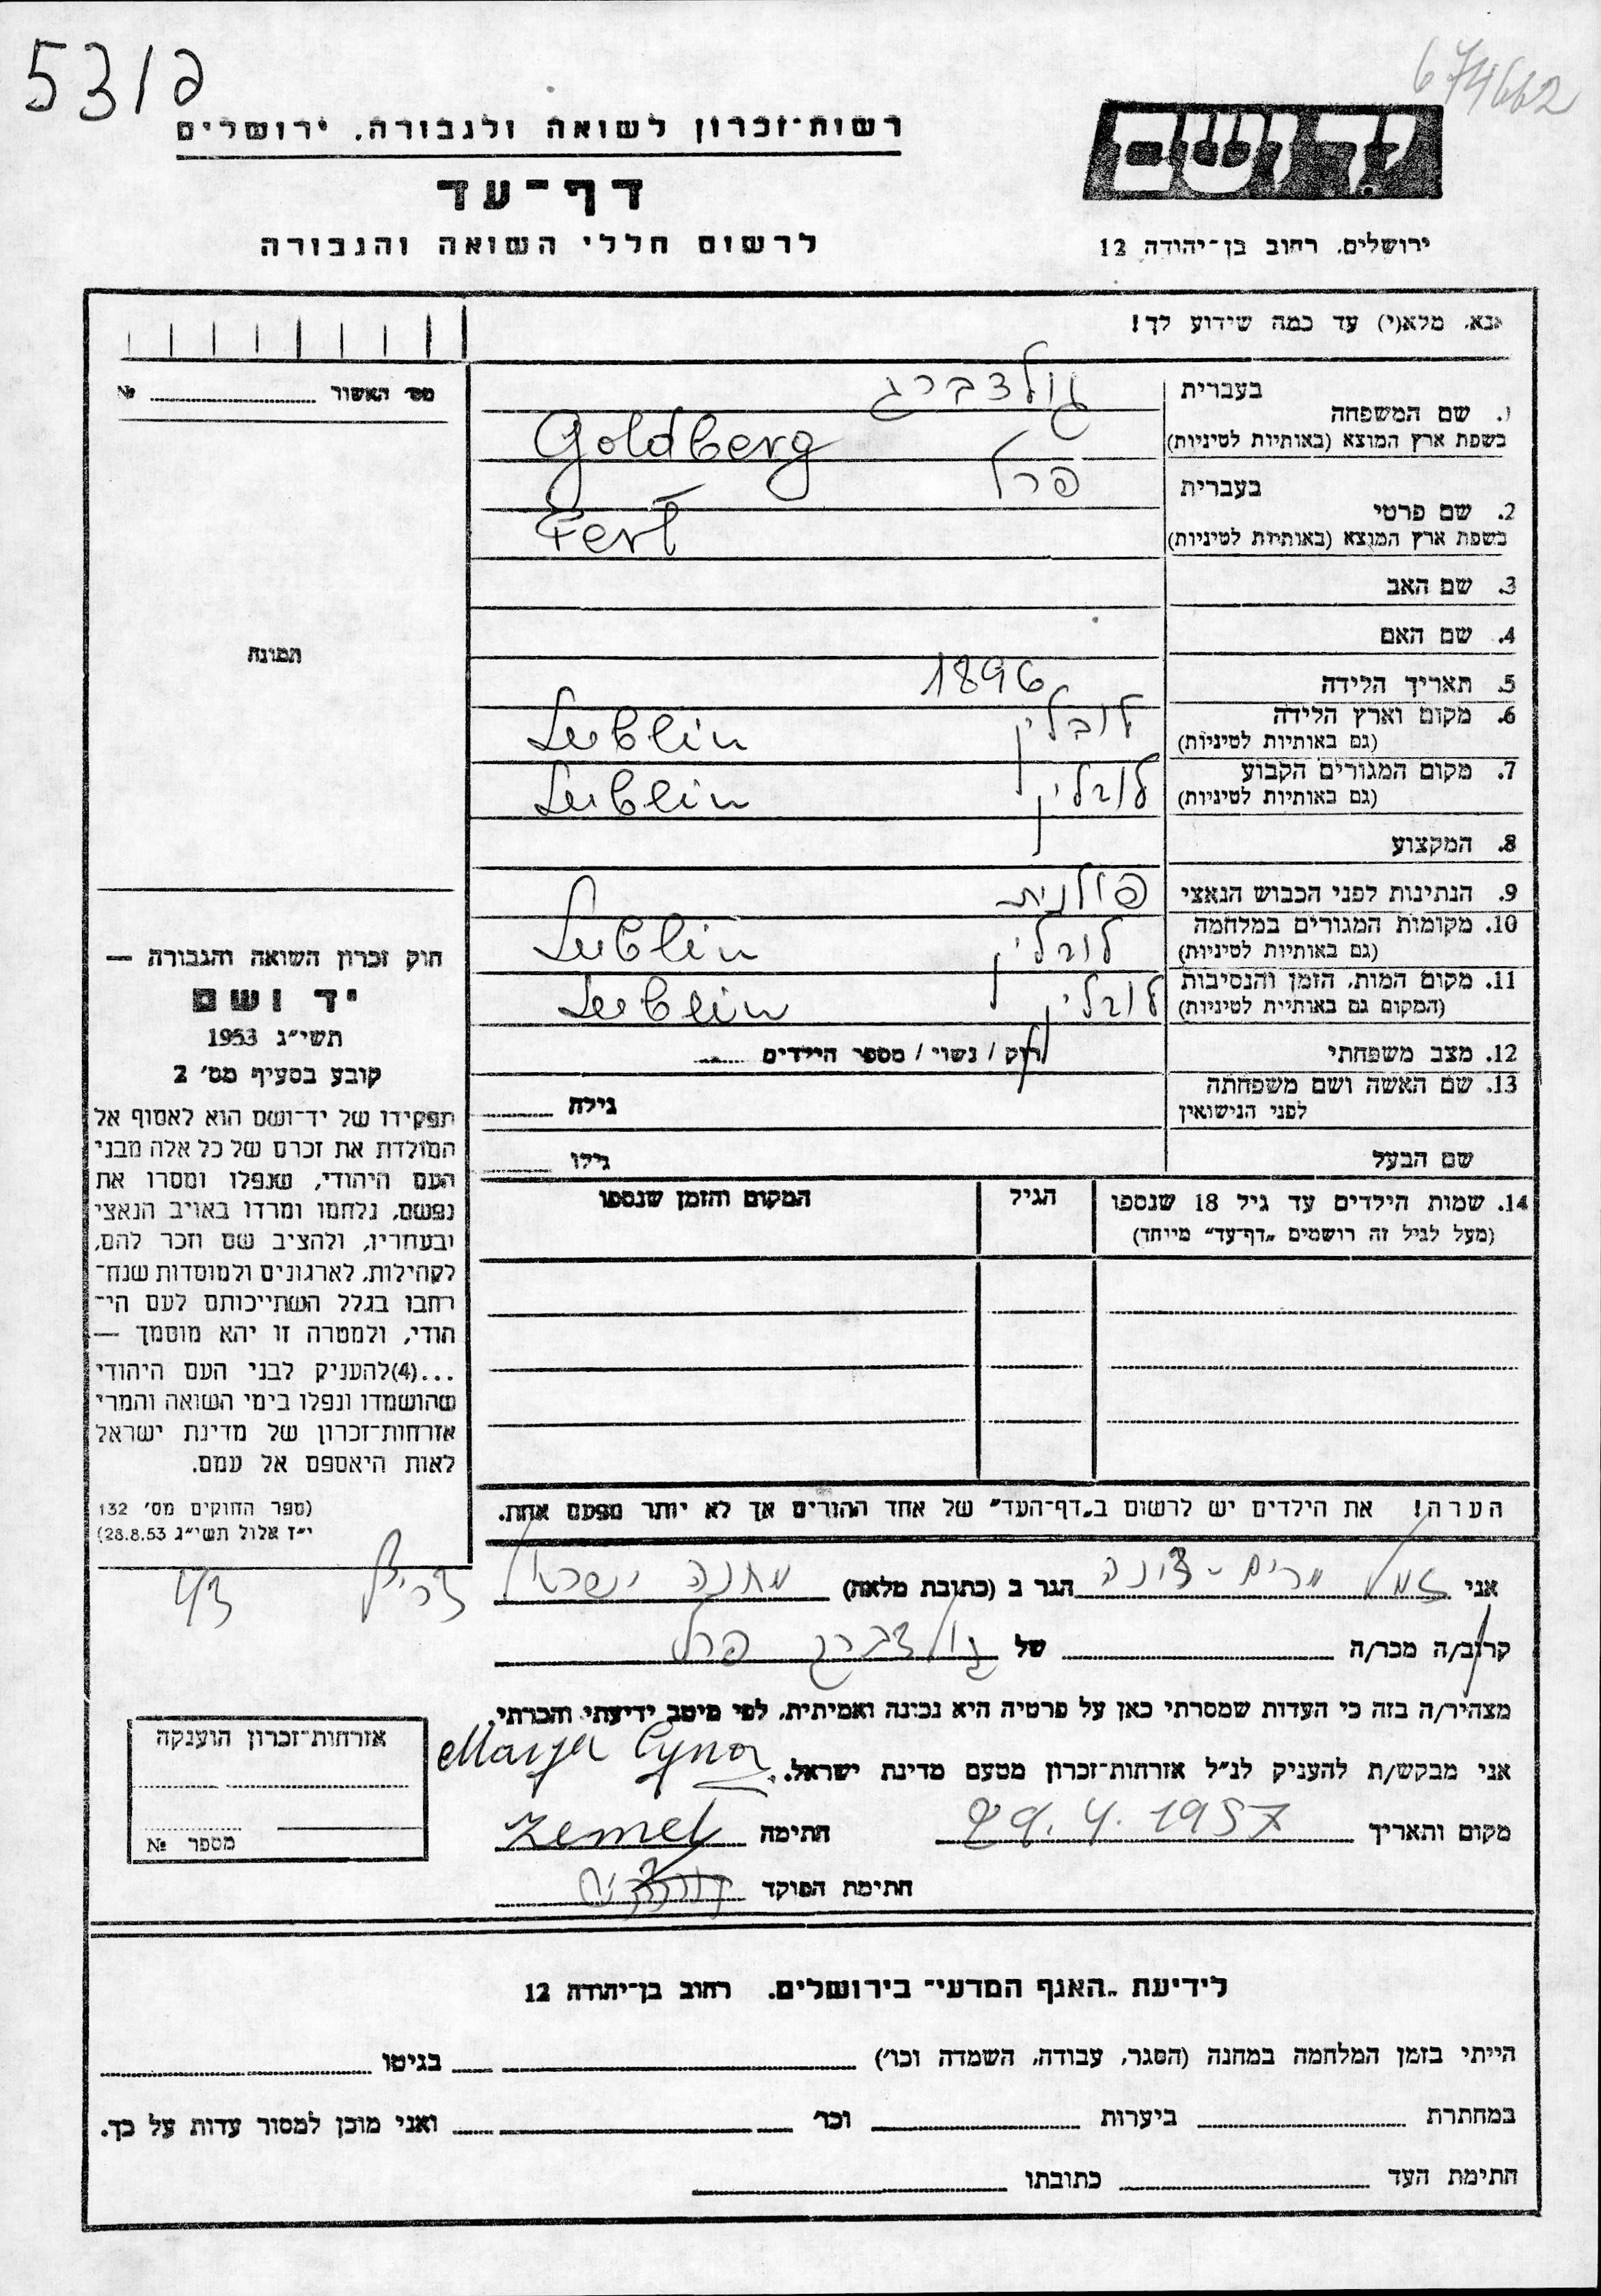 5319
674662
רשות־זכרון לשואה ולגבורה. ירושלים
יד ושם
דף־עד
לרשום חללי השואה והגבורה
ירושלים. רחוב בן־יהודה 12
אנא. מלא(י) עד כמה שידוע לך!
מס׳ האשור №
בעברית גולדברג
1. שם המשפחה
בשפת ארץ המוצא (באותיות לטיניות) Goldberg
בעברית פרל
2. שם פרטי
בשפת ארץ המוצא (באותיות לטיניות) Ferl
3. שם האב
4. שם האם
5. תאריך הלידה 1896
6. מקום וארץ הלידה לובלין Lublin
(גם באותיות לטיניות)
7. מקום המגורים הקבוע לובלין Lublin
(גם באותיות לטיניות)
8. המקצוע
9. הנתינות לפני הכבוש הנאצי פולנית
10. מקומות המגורים במלחמה לובלין Lublin
(גם באותיות לטיניות)
11. מקום המות. הזמן והנסיבות לובלין Lublin
(המקום גם באותיות לטיניות)
12. מצב משפחתי רווק / נשוי / מספר הילדים
13. שם האשה ושם משפחתה
לפני הנישואין גילה
שם הבעל גילו
14. שמות הילדים עד גיל 18 שנספו הגיל המקום והזמן שנספו
(מעל לגיל זה רושמים „דף־עד״ מיוחד)
הערה! את הילדים יש לרשום ב„דף־העד״ של אחד ההורים אך לא יותר מפעם אחת.
תמונה
חוק זכרון השואה והגבורה —
יד ושם
תשי״ג 1953
קובע בסעיף מס׳ 2
תפקידו של יד־ושם הוא לאסוף אל
המולדת את זכרם של כל אלה מבני
העם היהודי, שנפלו ומסרו את
נפשם, נלחמו ומרדו באויב הנאצי
ובעוזריו, ולהציב שם וזכר להם,
לקהילות, לארגונים ולמוסדות שנח־
רחבו בגלל השתייכותם לעם הי־
הודי, ולמטרה זו יהא מוסמך —
...(4)להעניק לבני העם היהודי
שהושמדו ונפלו בימי השואה והמרי
אזרחות־זכרון של מדינת ישראל
לאות היאספם אל עמם.
(ספר החוקים מס׳ 132
י״ז אלול תשי״ג 28.8.53)
אני זמל מרים־צינה הגר ב (כתובת מלאה) מחנה ישראל צריף
קרוב/ה מכר/ה של גולדברג פרל
מצהיר/ה בזה כי העדות שמסרתי כאן על פרטיה היא נכונה ואמיתית, לפי מיטב ידיעתי והכרתי.
אני מבקש/ת להעניק לנ״ל אזרחות־זכרון מטעם מדינת ישראל. Marja Cyna
מקום ותאריך 29.4.1957 חתימה Zemel
חתימת הפוקד
אזרחות־זכרון הוענקה
מספר №
לידיעת „האגף המדעי״ בירושלים. רחוב בן־יהודה 12
הייתי בזמן המלחמה במחנה (הסגר, עבודה, השמדה וכו׳) בגיטו
במחתרת ביערות וכו׳ ואני מוכן למסור עדות על כך.
חתימת העד כתובתו